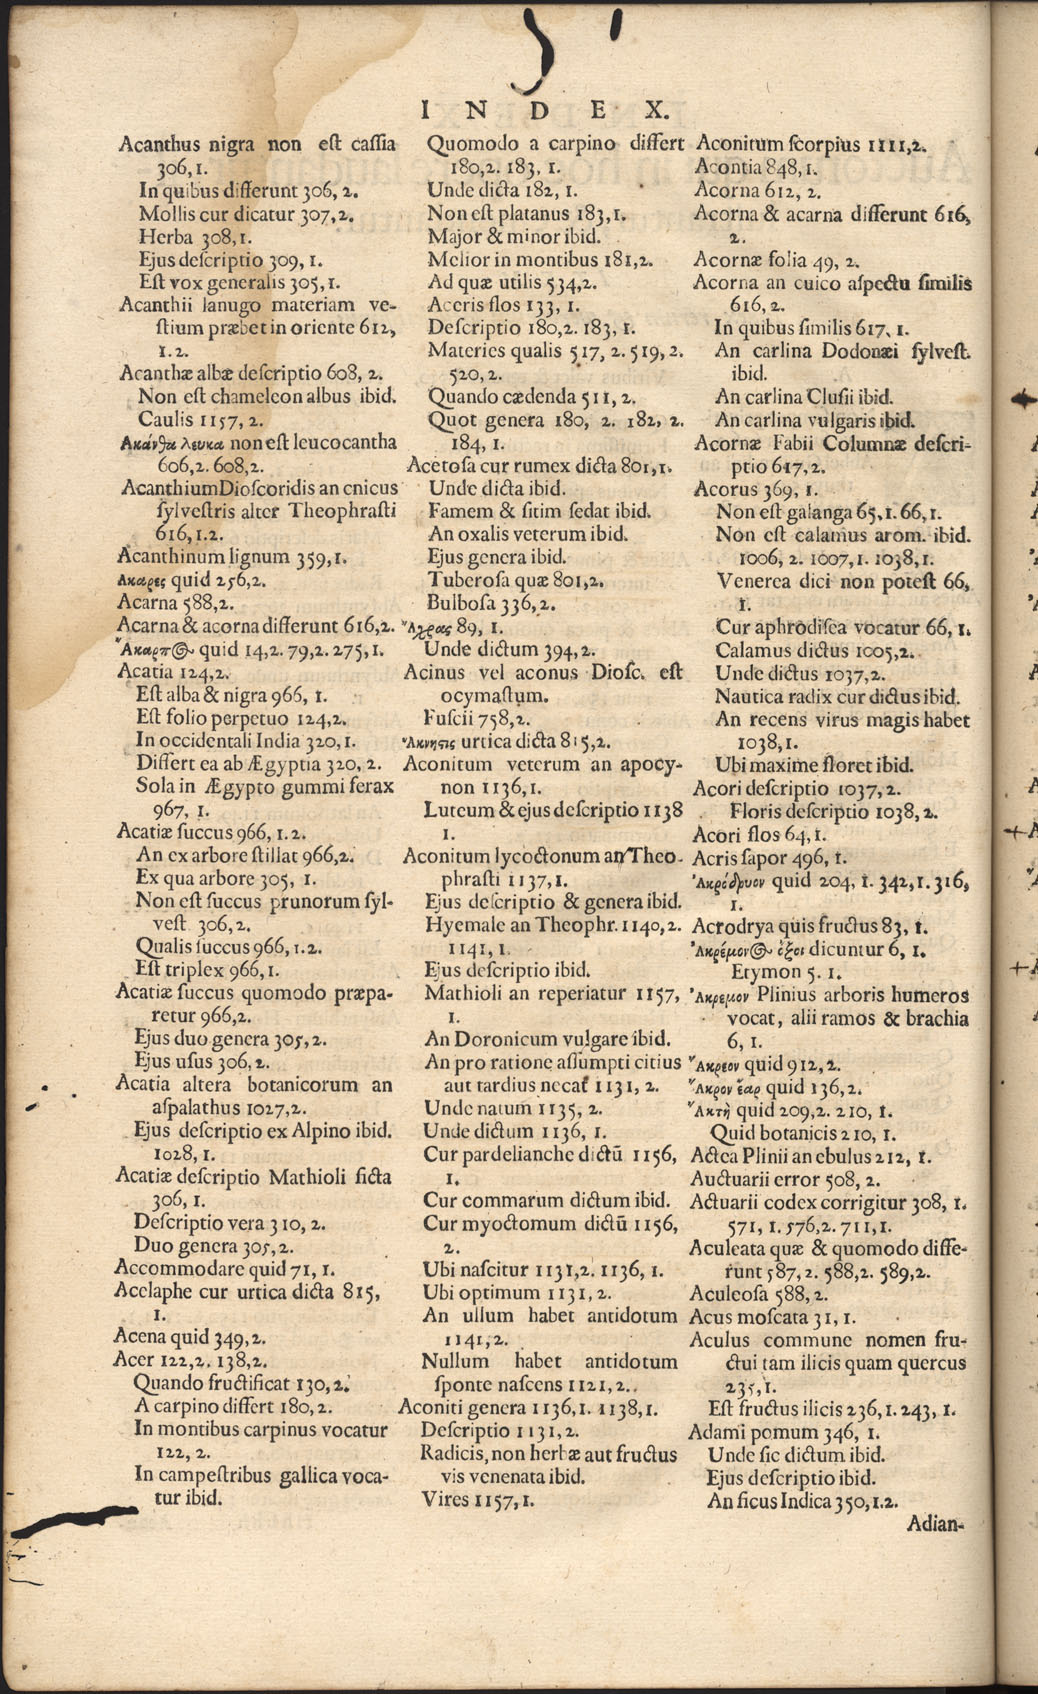 INDEX.
Acanthus nigra non est cassia
306,1.
In quibus differunt 306, 2.
Mollis cur dicatur 307,2.
Herba 308,1.
Ejus descriptio 309, 1.
Est vox generalis 305,1.
Acanthii lanugo materiam ve-
stium præbet in oriente 612,
1.2.
Acanthæ albæ descriptio 608, 2.
Non est chameleon albus ibid.
Caulis 1157,2.
Ακάνθα λευκα non est leucocantha
606,2. 608,2.
Acanthium Dioscoridis an cnicus
sylvestris alter Theophrasti
616,1.2.
Acanthinum lignum 359,1.
Ακαρες quid 256,2.
Acarna 588,2.
Acarna & acorna differunt 616,2.
Ἄκαρπ⊙ quid 14,2. 79,2. 275,1.
Acatia 124,2.
Est alba & nigra 966, 1.
Est folio perpetuo 124,2.
In occidentali India 320,1.
Differt ea ab Ægyptia 320, 2.
Sola in Ægypto gummi ferax
967, 1.
Acatiæ succus 966, 1.2.
An ex arbore stillat 966,2.
Ex qua arbore 305, 1.
Non est succus prunorum syl-
vest. 306,2.
Qualis succus 966,1.2.
Est triplex 966,1.
Acatiæ succus quomodo præpa-
retur 966,2.
Ejus duo genera 305,2.
Ejus usus 306,2.
Acatia altera botanicorum an
aspalathus 1027,2.
Ejus descriptio ex Alpino ibid.
1028,1.
Acatiæ descriptio Mathioli ficta
306,1.
Descriptio vera 310, 2.
Duo genera 305,2.
Accommodare quid 71, 1.
Acelaphe cur urtica dicta 815,
1.
Acena quid 349,2.
Acer 122,2. 138,2.
Quando fructificat 130,2.
A carpino differt 180,2.
In montibus carpinus vocatur
122, 2.
In campestribus gallica voca-
tur ibid.
Quomodo a carpino differt
180,2. 183, 1.
Unde dicta 182, 1.
Non est platanus 183,1.
Major & minor ibid.
Melior in montibus 181,2.
Ad quæ utilis 534,2.
Aceris flos 133, 1.
Descriptio 180,2. 183, 1.
Materies qualis 517, 2. 519,2.
520,2.
Quando cædenda 511, 2.
Quot genera 180, 2. 182, 2.
184, 1.
Acetosa cur rumex dicta 801,1.
Unde dicta ibid.
Famem & sitim sedat ibid.
An oxalis veterum ibid.
Ejus genera ibid.
Tuberosa quæ 801,2.
Bulbosa 336,2.
Ἄχρας 89, 1.
Unde dictum 394,2.
Acinus vel aconus Diosc. est
ocymastum.
Fuscii 758,2.
Ἄκνησις urtica dicta 815,2.
Aconitum veterum an apocy-
non 1136,1.
Luteum & ejus descriptio 1138
1.
Aconitum lycoctonum an Theo-
phrasti 1137,1.
Ejus descriptio & genera ibid.
Hyemale an Theophr. 1140,2.
1141, 1.
Ejus descriptio ibid.
Mathioli an reperiatur 1157,
1.
An Doronicum vulgare ibid.
An pro ratione assumpti citius
aut tardius necat 1131, 2.
Unde natum 1135, 2.
Unde dictum 1136, 1.
Cur pardelianche dictū 1156,
1.
Cur commarum dictum ibid.
Cur myoctomum dictū 1156,
2.
Ubi nascitur 1131,2. 1136, 1.
Ubi optimum 1131, 2.
An ullum habet antidotum
1141,2.
Nullum habet antidotum
sponte nascens 1121,2.
Aconiti genera 1136,1. 1138,1.
Descriptio 1131,2.
Radicis, non herbæ aut fructus
vis venenata ibid.
Vires 1157,1.
Aconitum scorpius 1111,2.
Acontia 848,1.
Acorna 612, 2.
Acorna & acarna differunt 616,
2.
Acornæ folia 49, 2.
Acorna an cuico aspectu similis
616,2.
In quibus similis 617, 1.
An carlina Dodonæi sylvest.
ibid.
An carlina Clusii ibid.
An carlina vulgaris ibid.
Acornæ Fabii Columnæ descri-
ptio 617,2.
Acorus 369, 1.
Non est galanga 65,1. 66,1.
Non est calamus arom. ibid.
1006, 2. 1007,1. 1038,1.
Venerea dici non potest 66,
1.
Cur aphrodisea vocatur 66, 1.
Calamus dictus 1005,2.
Unde dictus 1037,2.
Nautica radix cur dictus ibid.
An recens virus magis habet
1038,1.
Ubi maxime floret ibid.
Acori descriptio 1037,2.
Floris descriptio 1038,2.
Acori flos 64,1.
Acris sapor 496, 1.
Ἀκρόδρυον quid 204, 1. 342,1. 316,
1.
Acrodrya quis fructus 83, 1.
Ἀκρέμον⊙ ὄξοι dicuntur 6, 1.
Etymon 5. 1.
Ἀκρεμον Plinius arboris humeros
vocat, alii ramos & brachia
6, 1.
Ἄκρεον quid 912,2.
Ἄκρον ἔαρ quid 136,2.
Ἄκτὴ quid 209,2. 210, 1.
Quid botanicis 210, 1.
Actea Plinii an ebulus 212, 1.
Auctuarii error 508, 2.
Actuarii codex corrigitur 308, 1.
571, 1. 576,2. 711,1.
Aculeata quæ & quomodo diffe-
runt 587,2. 588,2. 589,2.
Aculeosa 588,2.
Acus moscata 31, 1.
Aculus commune nomen fru-
ctui tam ilicis quam quercus
235,1.
Est fructus ilicis 236,1. 243, 1.
Adami pomum 346, 1.
Unde sic dictum ibid.
Ejus descriptio ibid.
An ficus Indica 350,1.2.
Adian-